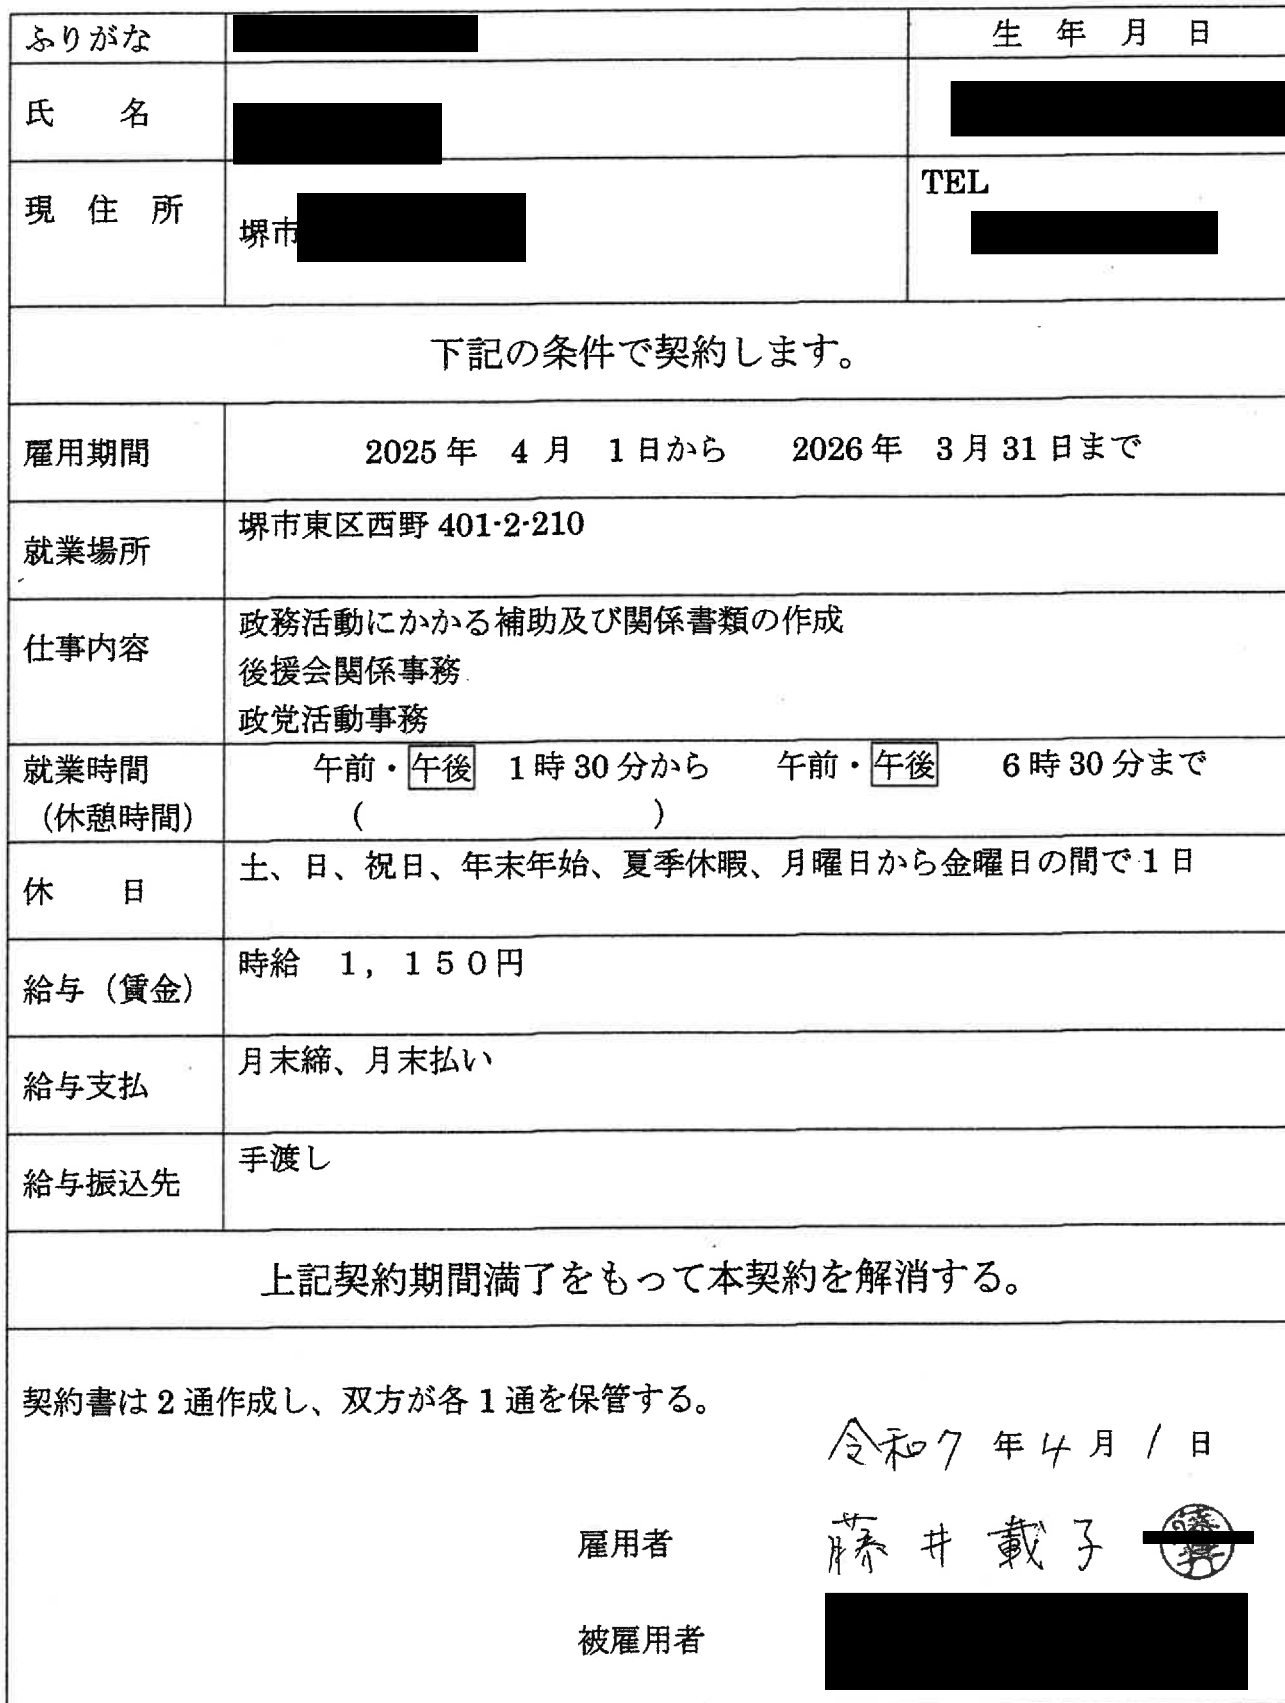 ふりがな
生 年 月 日
氏 名
現 住 所
堺市
TEL
下記の条件で契約します。
雇用期間
2025年 4月 1日から 2026年 3月31日まで
就業場所
堺市東区西野401-2-210
仕事内容
政務活動にかかる補助及び関係書類の作成
後援会関係事務
政党活動事務
就業時間
(休憩時間)
午前・午後 1時30分から 午前・午後 6時30分まで
( )
休 日
土、日、祝日、年末年始、夏季休暇、月曜日から金曜日の間で1日
給与(賃金)
時給 1,150円
給与支払
月末締、月末払い
給与振込先
手渡し
上記契約期間満了をもって本契約を解消する。
契約書は2通作成し、双方が各1通を保管する。
令和7年4月1日
雇用者 藤井載子
被雇用者